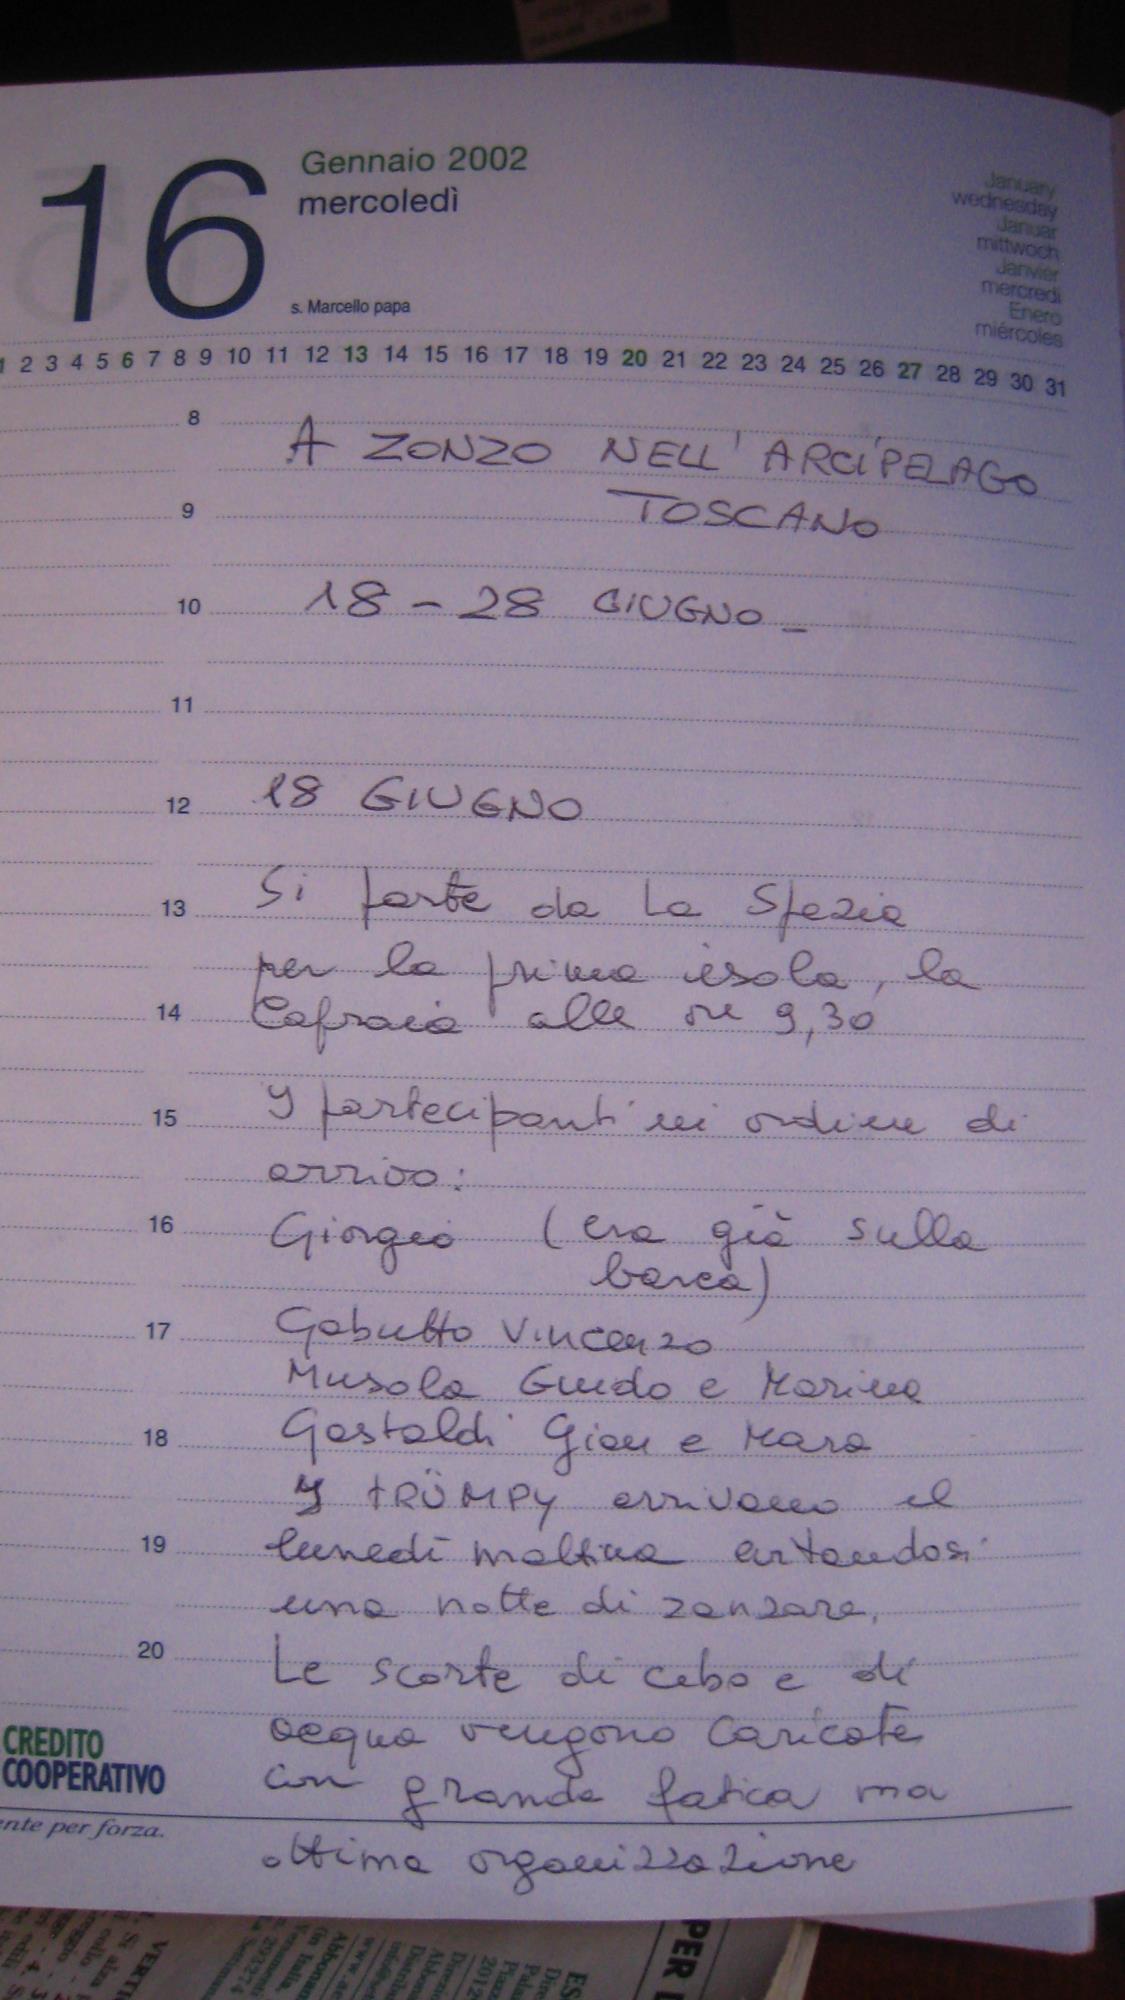 16
Gennaio 2002
mercoledì
s. Marcello papa
January
wednesday
Januar
mittwoch
Janvier
mercredi
Enero
miércoles
1 2 3 4 5 6 7 8 9 10 11 12 13 14 15 16 17 18 19 20 21 22 23 24 25 26 27 28 29 30 31
8
A ZONZO NELL'ARCIPELAGO
9
TOSCANO
10
18 - 28 GIUGNO -
11
12
18 GIUGNO
13
Si parte da La Spezia
per la prima isola, la
14
Capraia alle ore 9,30
15
I partecipanti in ordine di
arrivo:
16
Giorgio (era già sulla
barca)
17
Gabutto Vincenzo
Musola Guido e Marina
18
Gastaldi Gian e Mara
I TRÜMPY arrivano il
19
lunedì mattina evitandosi
una notte di zanzare.
20
Le scorte di cibo e di
acqua vengono caricate
con grande fatica ma
ottima organizzazione
CREDITO
COOPERATIVO
ente per forza.
VERTI
ES
PER